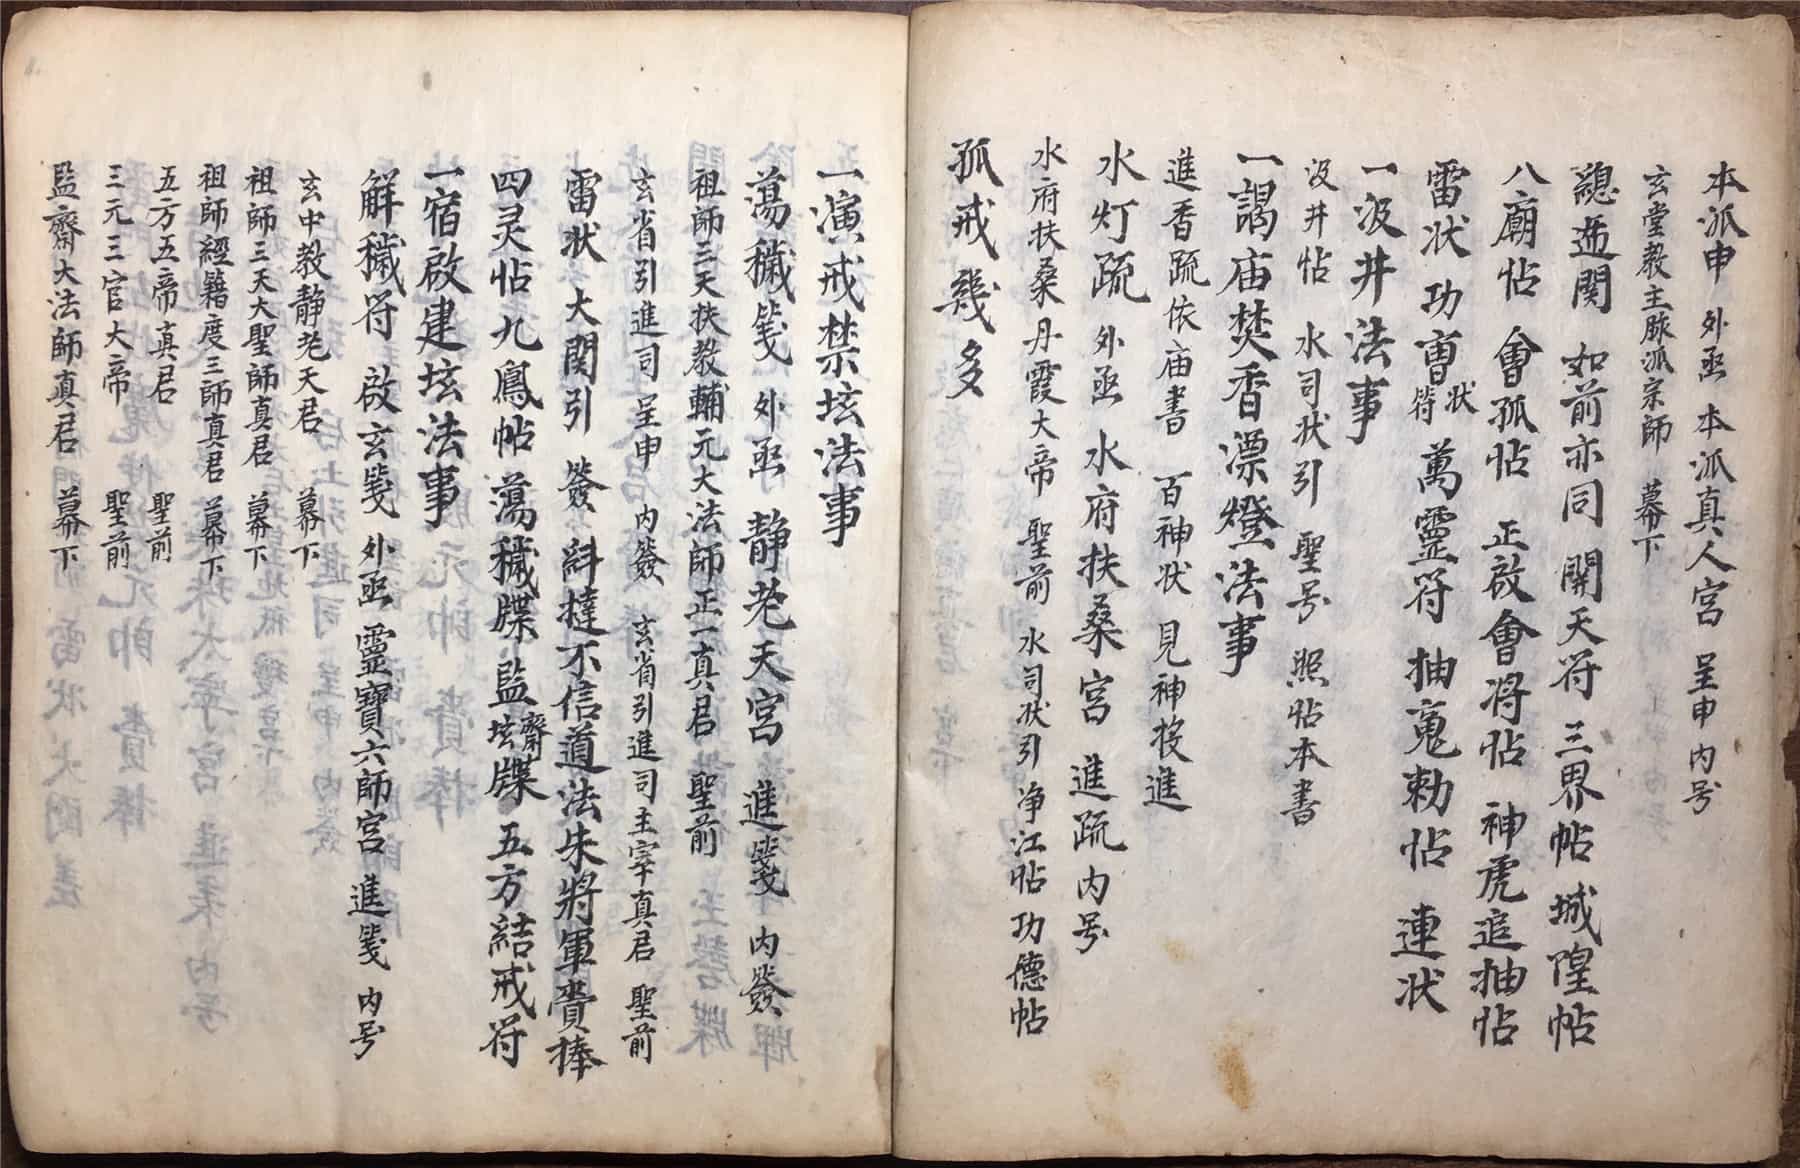 本派申 外函 本派真人宮 呈申内号
玄堂教主脉派宗師 幕下
總逓関 如前亦同 開天符 三界帖 城隍帖
八廟帖 會孤帖 正啟會将帖 神虎追抽帖
雷状 功曹状符 萬靈符 抽魂勅帖 連状
一汲井法事
汲井帖 水司状引 聖号 照帖本書
一謁庙焚香漂燈法事
進香疏依庙書 百神状 見神投進
水灯疏 外函 水府扶桑宮 進疏内号
水府扶桑丹霞大帝 聖前 水司状引 净江帖 功德帖
孤戒幾多
一演戒禁坛法事
蕩穢箋 外函 静老天宮 進箋 内簽
祖師三天扶教輔元大法師正一真君 聖前
玄省引進司 呈申 内簽 玄省引進司主宰真君 聖前
雷状 大関引 簽 糾撻不信道法朱將軍賫捧
四灵帖 九鳳帖 蕩穢牒 監齋坛牒 五方結戒符
一宿啟建坛法事
解穢符 啟玄箋 外函 靈寶六師宮 進箋 内号
玄中教静老天君 幕下
祖師三天大聖師真君 幕下
祖師經籍度三師真君 幕下
五方五帝真君 聖前
三元三官大帝 聖前
監齋大法師真君 幕下